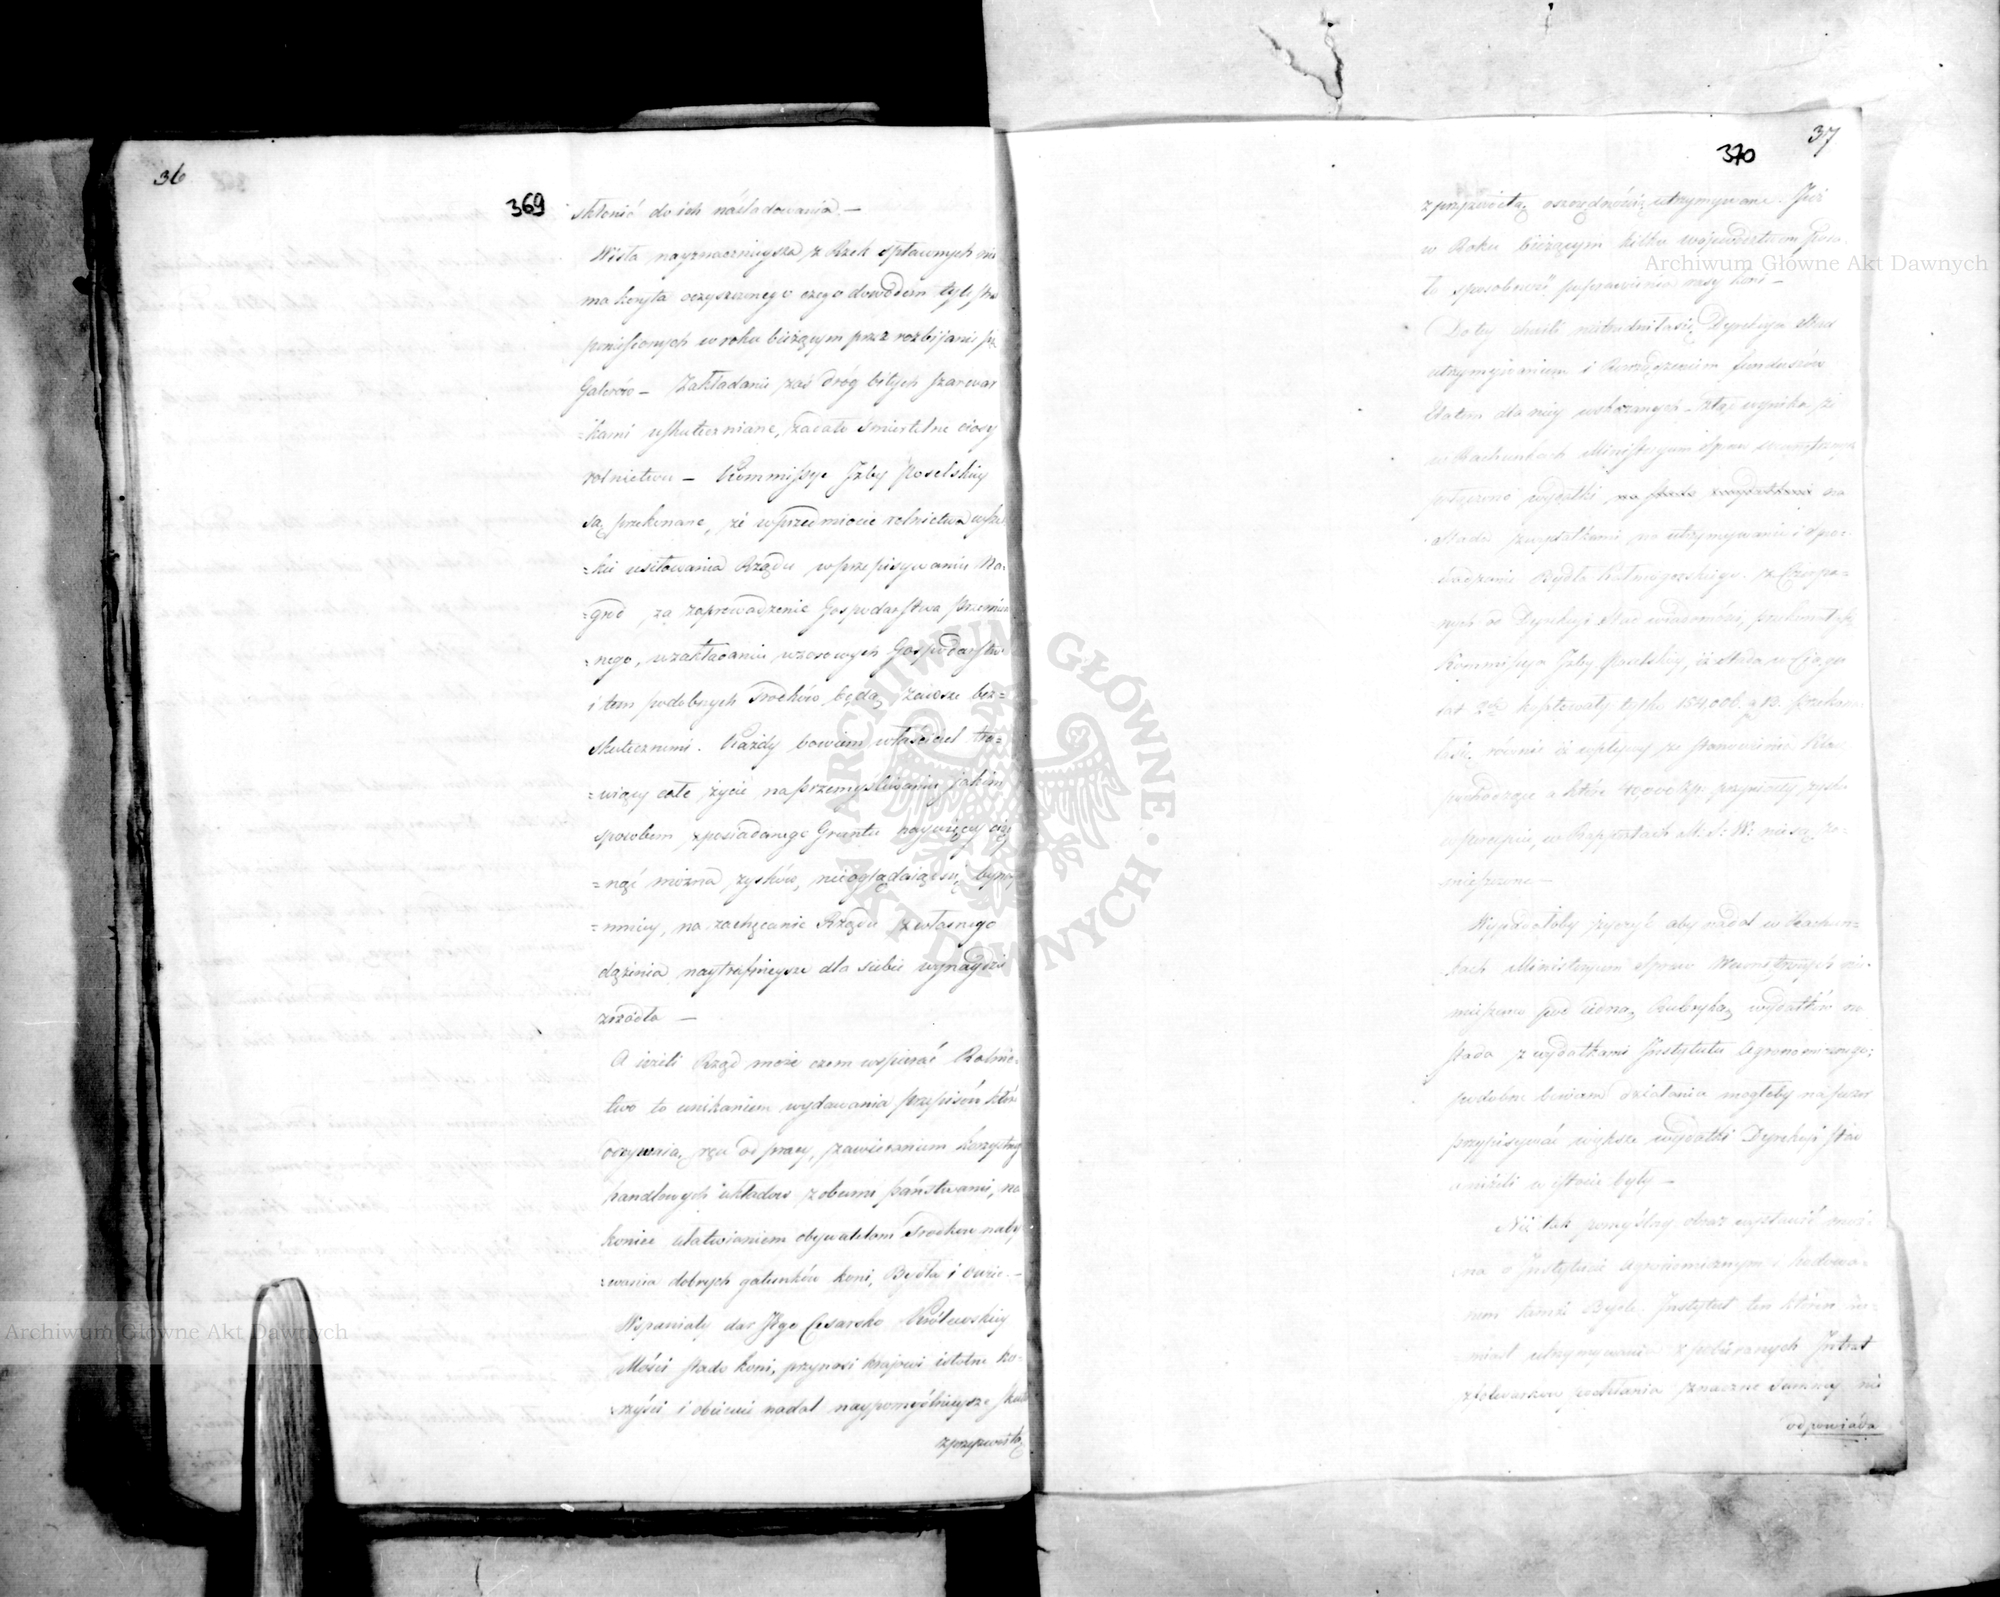 36
369
skłonić do ich naśladowania. —
Wisła nayznacznieysza z Rzek spławnych nie
ma koryta oczyszczonego czego dowodem tyle strat
poniesionych w roku bieżącym przez rozbijanie się
Galarów — Zakładanie zaś dróg bitych szarwar
=kami uskuteczniane, zadało śmiertelne ciosy
rolnictwu — Kommissye Izby Poselskiey
są przekonane, że w przedmiocie rolnictwa wszel
=kie usiłowania Rządu w przepisywaniu Na=
=gród za zaprowadzenie Gospodarstwa przemien
=nego, w zakładaniu wzorowych Gospodarstw
i tem podobnych środków będą zawsze bez=
skutecznemi. Każdy bowiem właściciel tra=
=wiący całe życie na przemyśliwaniu jakim
sposobem z posiadanego Gruntu naywięcey ciąg
=nąć można zysków, nieoglądaiąc się bynay
=mniey, na zachęcanie Rządu z własnego
dążenia naytrafnieysze dla siebie wynaydzie
źrzódła —
A ieżeli Rząd może czem wspierać Rolnic=
two to unikaniem wydawania przepisów które
odrywaią rąk od pracy, zawieraniem korzystnych
handlowych układów z obcemi państwami, na
koniec ułatwianiem obywatelom środków naby
=wania dobrych gatunków koni, Bydła i owiec. —
Wspaniały dar Jego Cesarsko Królewskiey
Mości stado koni, przynosi krajowi istotne ko=
=rzyści i obiecuie nadal naypomyślnieysze skutki
z przyzwoitą
370
37
z przyzwoitą oszczędnością utrzymywane. Już
w Roku bieżącym kilku wojewodztwom poda=
ło sposobność poprawienia rasy koni —
Do tey chwili zatrudniała się Dyrekcya Stad
utrzymywaniem i Rozrządzeniem funduszów
Etatem dla niey wskazanych. Ztąd wynika że
w Rachunkach Ministeryum Spraw wewnętrznych
połączono wydatki na
Stada z wydatkami na utrzymywanie i spro=
wadzanie Bydła Hołmogorskiego. z Czerpa=
nych od Dyrekcyi Stad wiadomości, przekonały się
Kommissye Izby Poselskiey, iż stada w Ciągu
lat 2ch kosztowały tylko 154,006. g 19. Przekona=
ły się równie iż wpływy ze stanowienia Klaczy
pochodzące a które 40,000 Zp. przyniosły, zysku
w Rapportach M: S: W: nie są za=
mieszczone —
Wypadałoby życzyć aby nadal w Rachun=
kach Ministeryum Spraw Wewnętrznych nie
mieszano pod iedną Rubryką wydatków na
stada z wydatkami Instytutu Agronomicznego:
podobne bowiem działania mogłyby na pozór
przypisywać większe wydatki Dyrekcyi stad
aniżeli w istocie były —
Nie tak pomyślny obraz wystawić moż=
=na o Instytucie Agronomicznym i hodowa=
niem tamże Bydła. Instytut ten którem za=
=miast utrzymywania z pobieranych Intrat
z folwarków pochłania znaczne Summy nie
odpowiada
Archiwum Główne Akt Dawnych
Archiwum Główne Akt Dawnych
ARCHIWUM GŁÓWNE AKT DAWNYCH